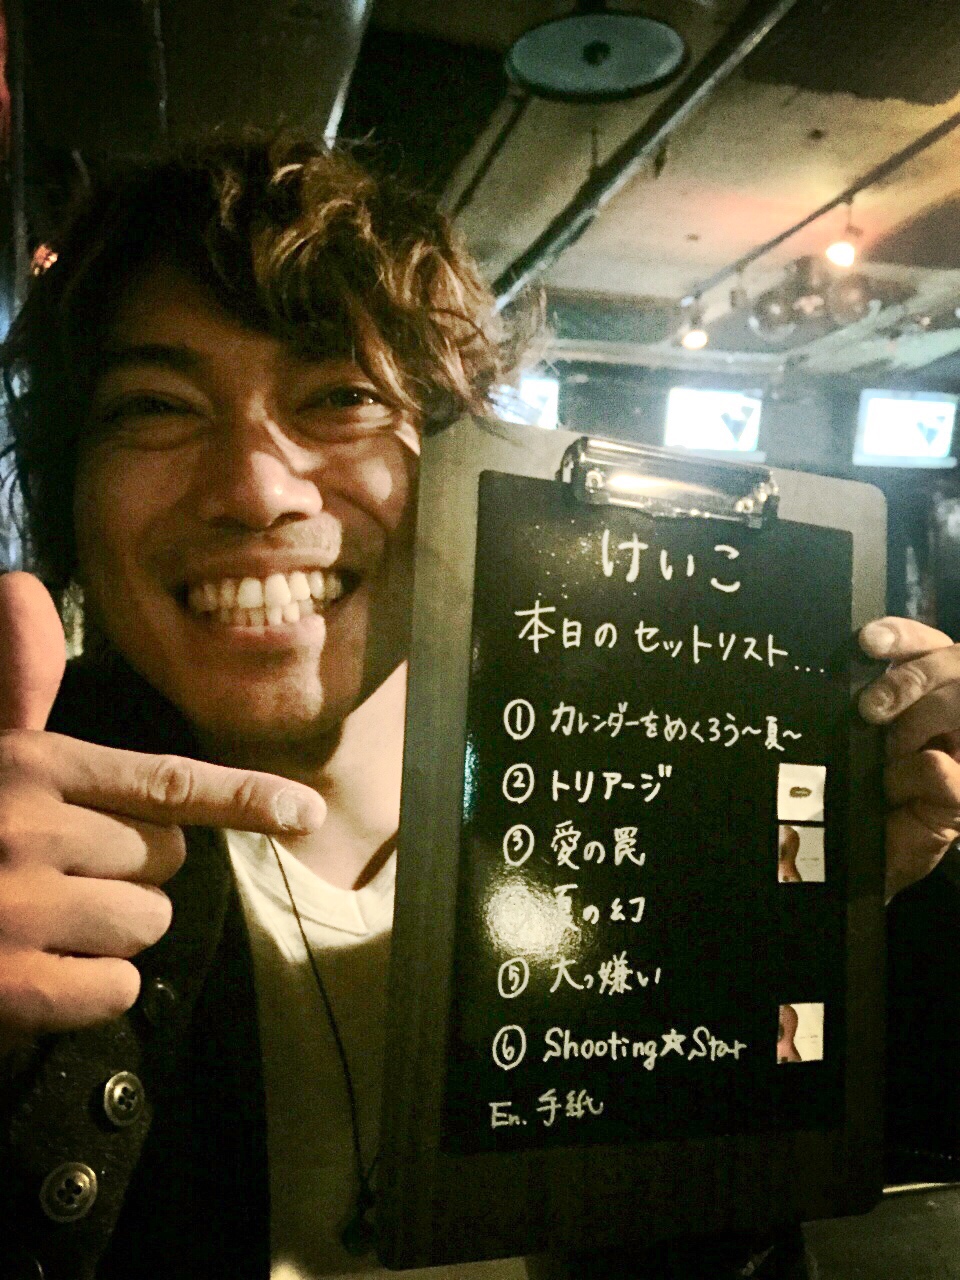 けいこ
本日のセットリスト...
① カレンダーをめくろう～夏～
② トリアージ
③ 愛の罠
夏の幻
⑤ 大っ嫌い
⑥ Shooting★Star
En. 手紙